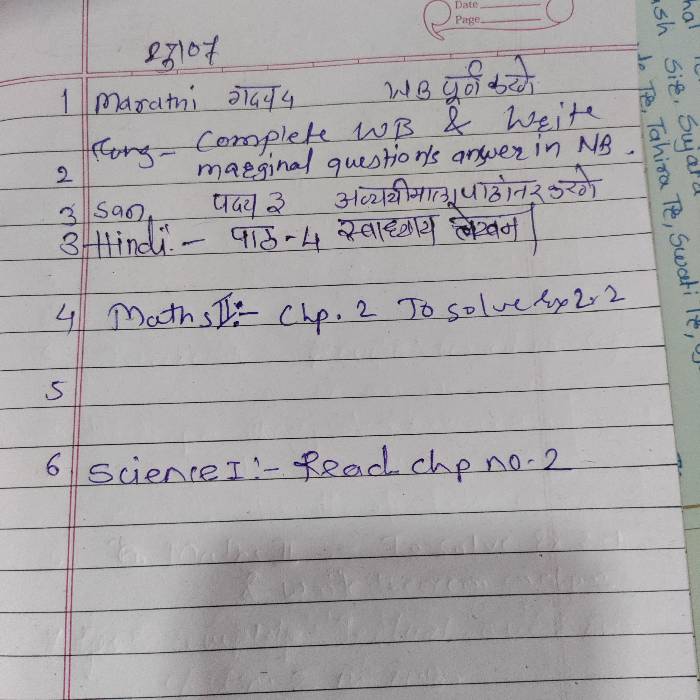 Date
Page
1 Marathi गद्य 4 WB पूर्ण करणे
2 Eng - Complete WB & Write
marginal questions answer in NB.
3 San. पद्य 3 करणे
3 Hindi :- पाठ - 4 स्वाध्याय लेखन|
4 Maths II :- Chp. 2 To solve Ex 2.2
5
6 Science I :- Read chp no. 2
Site, Sujata
Te, Tahira Te, Swati Te,